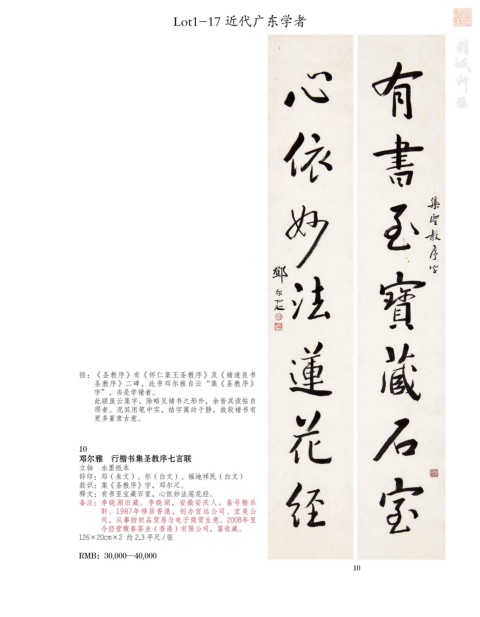 Lot1-17 近代广东学者
有書至寶藏石室
集聖教序字
心依妙法蓮花經
鄧尔疋
按：《圣教序》有《怀仁集王圣教序》及《褚遂良书
圣教序》二碑，此书邓尔雅自云“集《圣教序》
字”，当是学褚者。
此联虽云集字，除略见褚书之形外，余皆其读帖自
得者。况其用笔中实，结字寓动于静，故较褚书有
更多篆隶古意。
10
邓尔雅　行楷书集圣教序七言联
立轴　水墨纸本
钤印：邓（朱文）、尔（白文）、福地祥民（白文）
款识：集《圣教序》字，邓尔疋。
释文：有书至宝藏石室，心依妙法莲花经。
备注：李晓湖旧藏。李晓湖，安徽安庆人。斋号翰乐
轩。1987年移居香港，创办宜远公司、宜美公
司，从事纺织品贸易与电子商贸生意。2008年至
今经营馥春茶业（香港）有限公司，富收藏。
126×20cm×2 约 2.3 平尺/张
RMB: 30,000—40,000
10